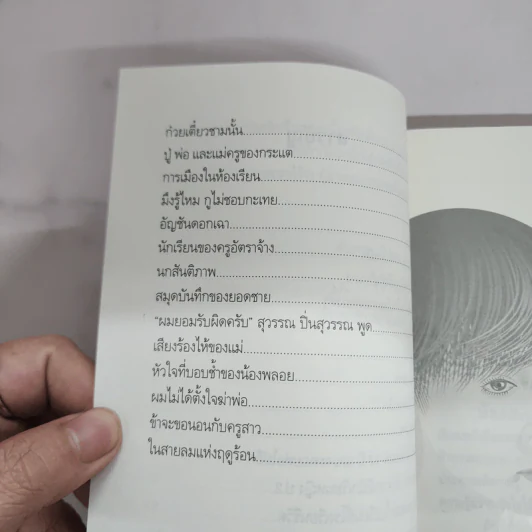 ก๋วยเตี๋ยวชามนั้น
ปู่ พ่อ และแม่ครูของกระแต
การเมืองในห้องเรียน
มึงรู้ไหม กูไม่ชอบกะเทย
อัญชันดอกเฉา
นักเรียนของครูอัตราจ้าง
นกสันติภาพ
สมุดบันทึกของยอดชาย
"ผมยอมรับผิดครับ" สุวรรณ ปิ่นสุวรรณ พูด
เสียงร้องไห้ของแม่
หัวใจที่บอบช้ำของน้องพลอย
ผมไม่ได้ตั้งใจฆ่าพ่อ
ข้าจะขอนอนกับครูสาว
ในสายลมแห่งฤดูร้อน